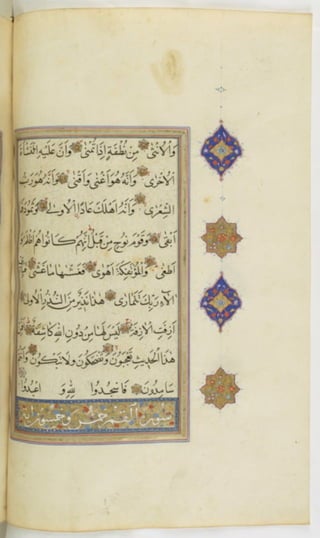 وَالْأُنْثَى مِنْ نُطْفَةٍ إِذَا تُمْنَى وَأَنَّ عَلَيْهِ النَّشْأَةَ
الْأُخْرَى وَأَنَّهُ هُوَ أَغْنَى وَأَقْنَى وَأَنَّهُ هُوَ رَبُّ
الشِّعْرَى وَأَنَّهُ أَهْلَكَ عَادًا الْأُولَى وَثَمُودَ فَمَا
أَبْقَى وَقَوْمَ نُوحٍ مِنْ قَبْلُ إِنَّهُمْ كَانُوا هُمْ أَظْلَمَ وَ
أَطْغَى وَالْمُؤْتَفِكَةَ أَهْوَى فَغَشَّيهَا مَا غَشَّى فَبِأَيِّ
آلَاءِ رَبِّكَ تَتَمَارَى هَذَا نَذِيرٌ مِنَ النُّذُرِ الْأُولَى
أَزِفَتِ الْآزِفَةُ لَيْسَ لَهَا مِنْ دُونِ اللَّهِ كَاشِفَةٌ أَفَمِنْ
هَذَا الْحَدِيثِ تَعْجَبُونَ وَتَضْحَكُونَ وَلَا تَبْكُونَ وَأَنْتُمْ
سَامِدُونَ فَاسْجُدُوا لِلَّهِ وَاعْبُدُوا
سورة القمر خمس و خمسون اية